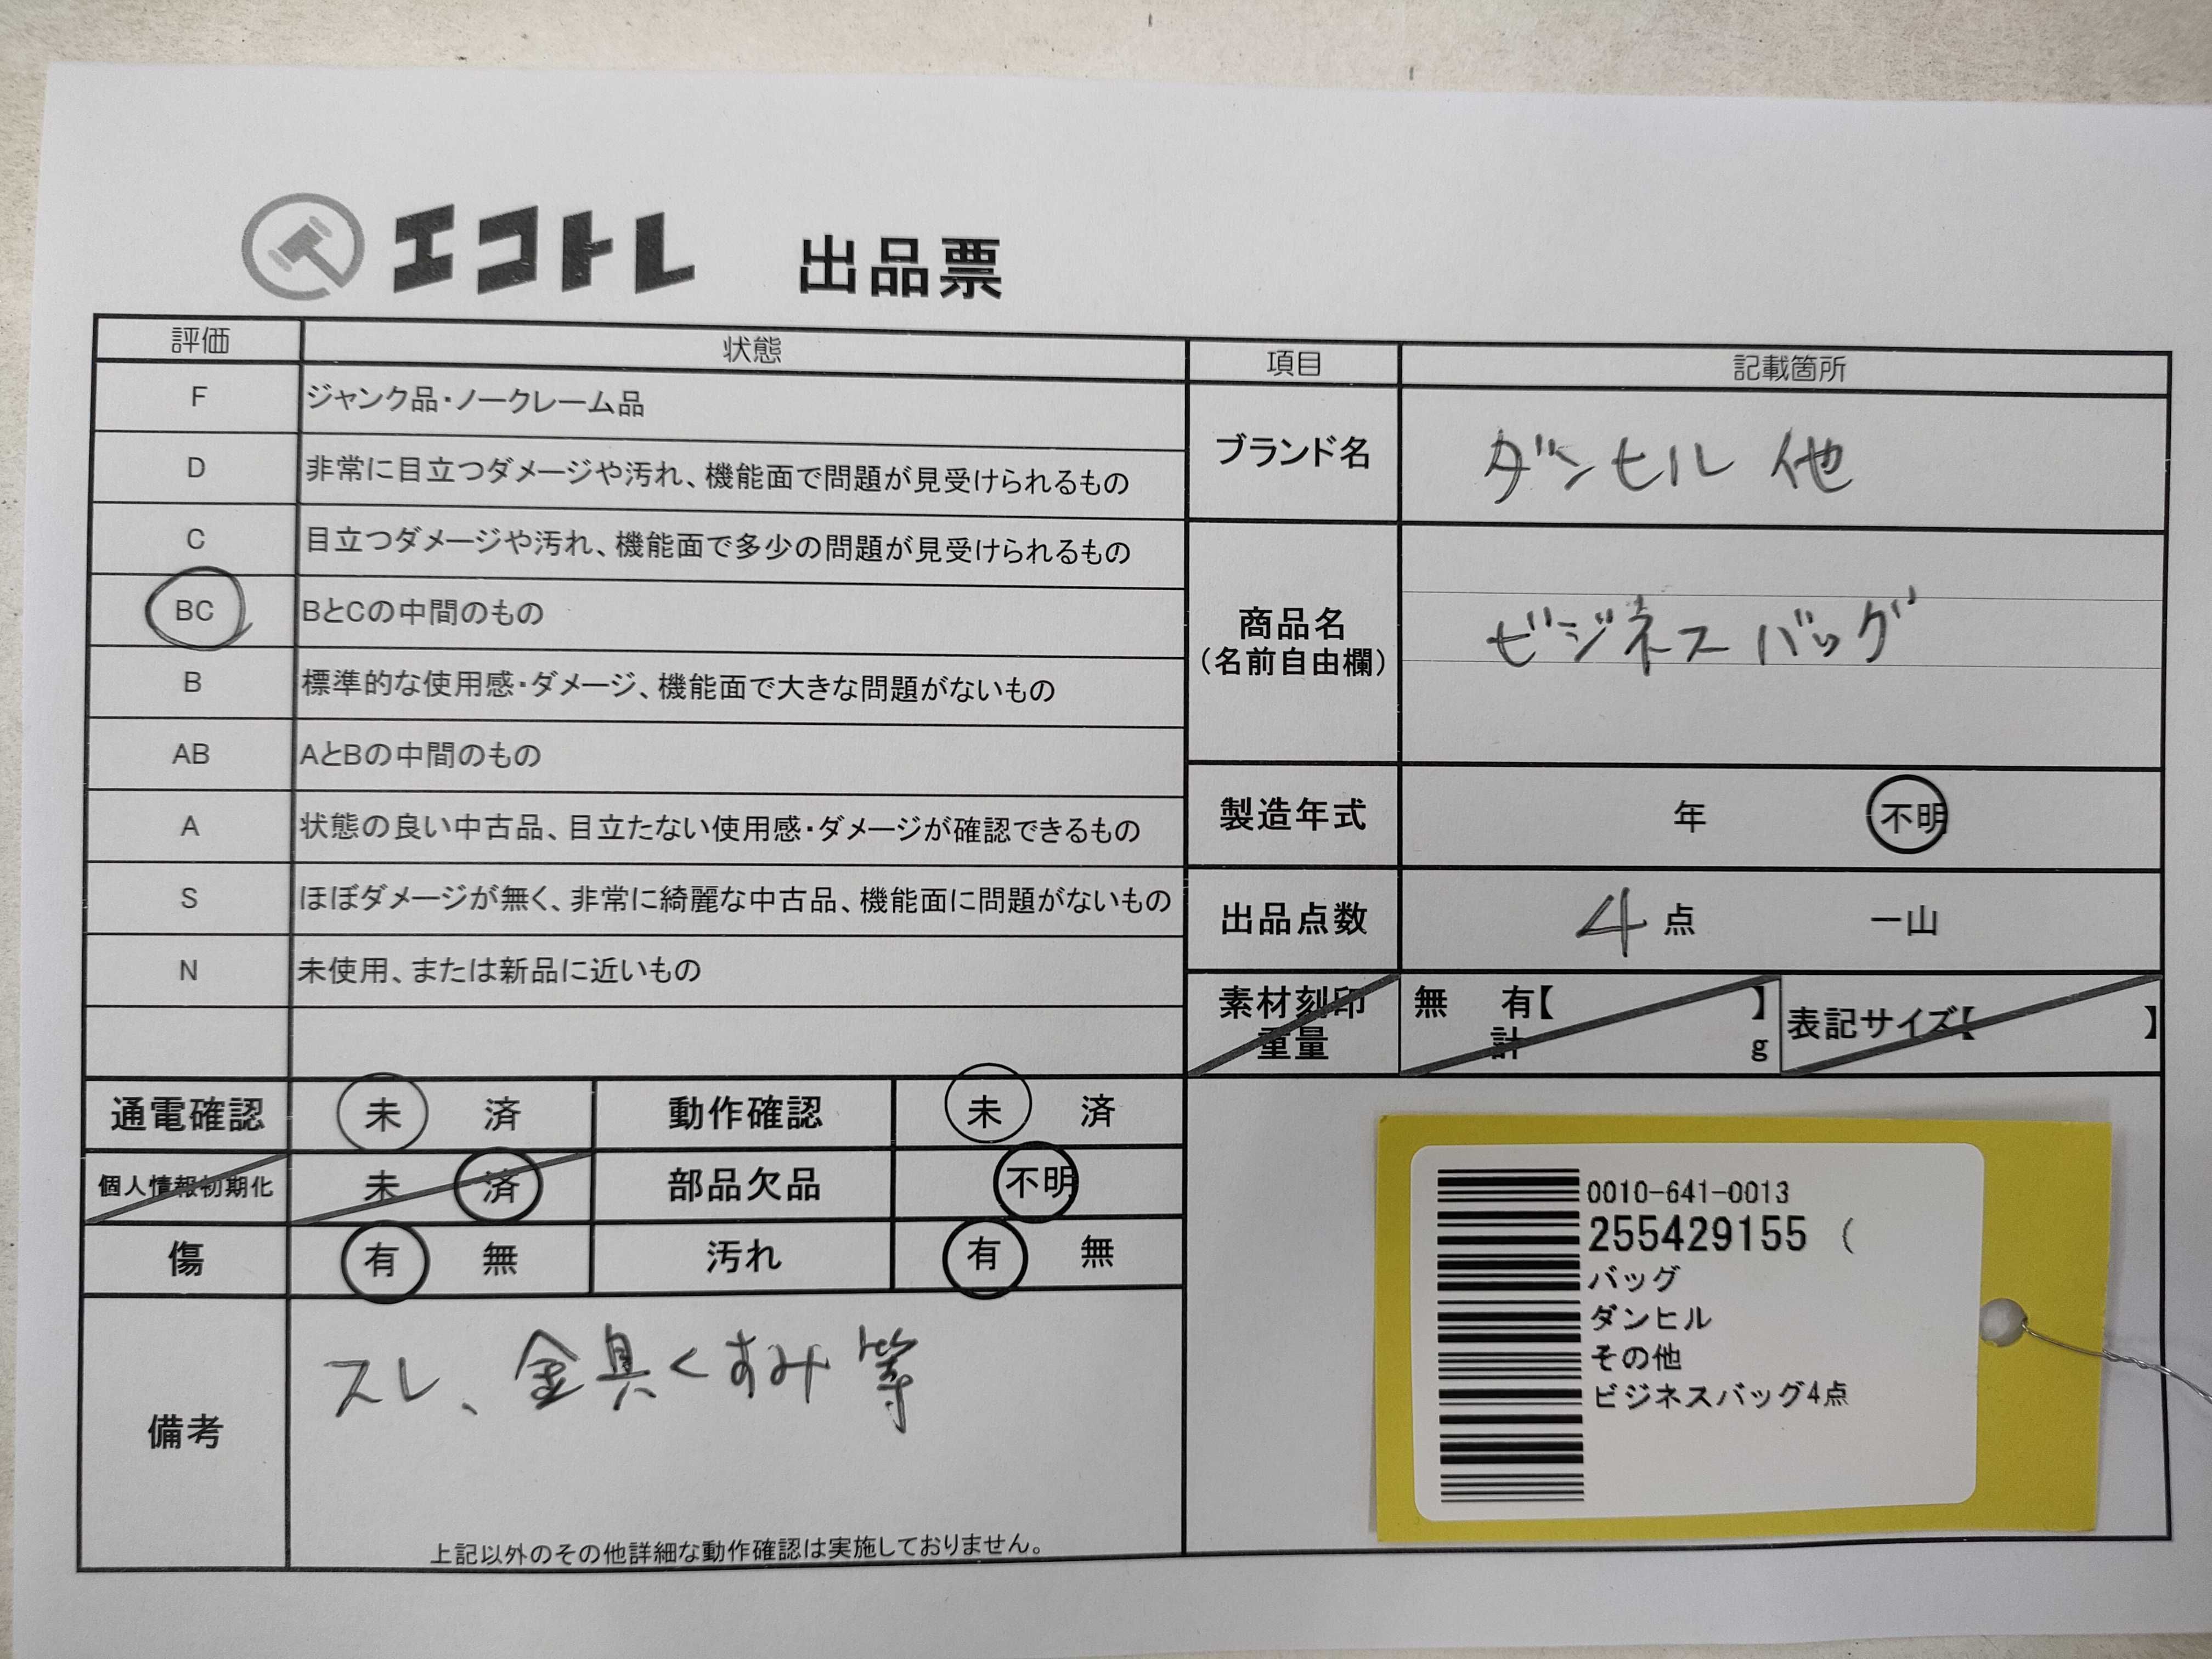 エコトレ 出品票
評価 状態
F ジャンク品・ノークレーム品
D 非常に目立つダメージや汚れ、機能面で問題が見受けられるもの
C 目立つダメージや汚れ、機能面で多少の問題が見受けられるもの
BC BとCの中間のもの
B 標準的な使用感・ダメージ、機能面で大きな問題がないもの
AB AとBの中間のもの
A 状態の良い中古品、目立たない使用感・ダメージが確認できるもの
S ほぼダメージが無く、非常に綺麗な中古品、機能面に問題がないもの
N 未使用、または新品に近いもの
項目 記載箇所
ブランド名 ダンヒル 他
商品名
(名前自由欄)
ビジネスバッグ
製造年式 年 不明
出品点数 4点 一山
素材刻印 無 有【 】
重量 計 g
表記サイズ【 】
通電確認 未 済 動作確認 未 済
個人情報初期化 未 済 部品欠品 不明
傷 有 無 汚れ 有 無
備考
スレ、金具くすみ等
上記以外のその他詳細な動作確認は実施しておりません。
0010-641-0013
255429155 (
バッグ
ダンヒル
その他
ビジネスバッグ4点